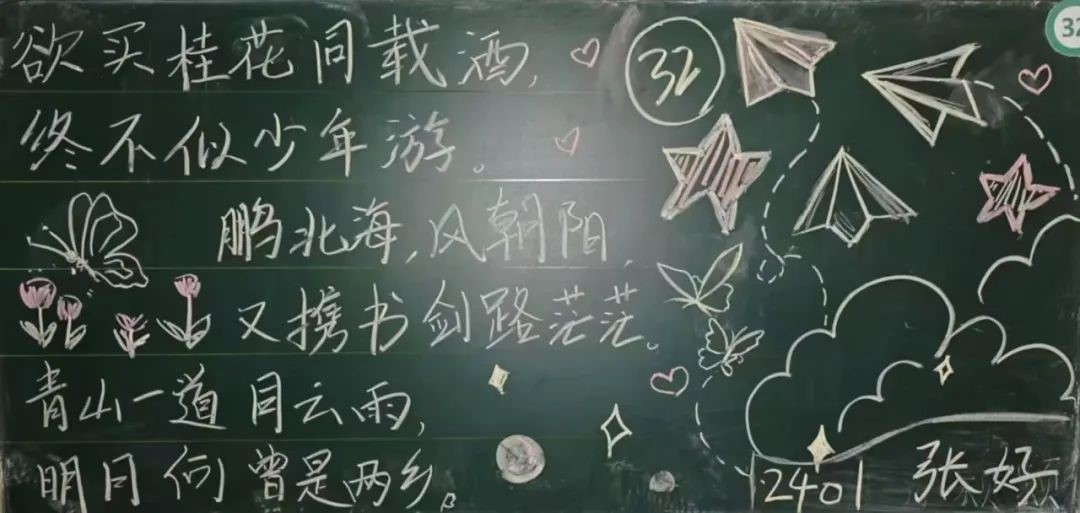 欲买桂花同载酒,
终不似少年游。
鹏北海,风朝阳,
又携书剑路茫茫。
青山一道目云雨,
明日何曾是两乡。
32
32
2401 张